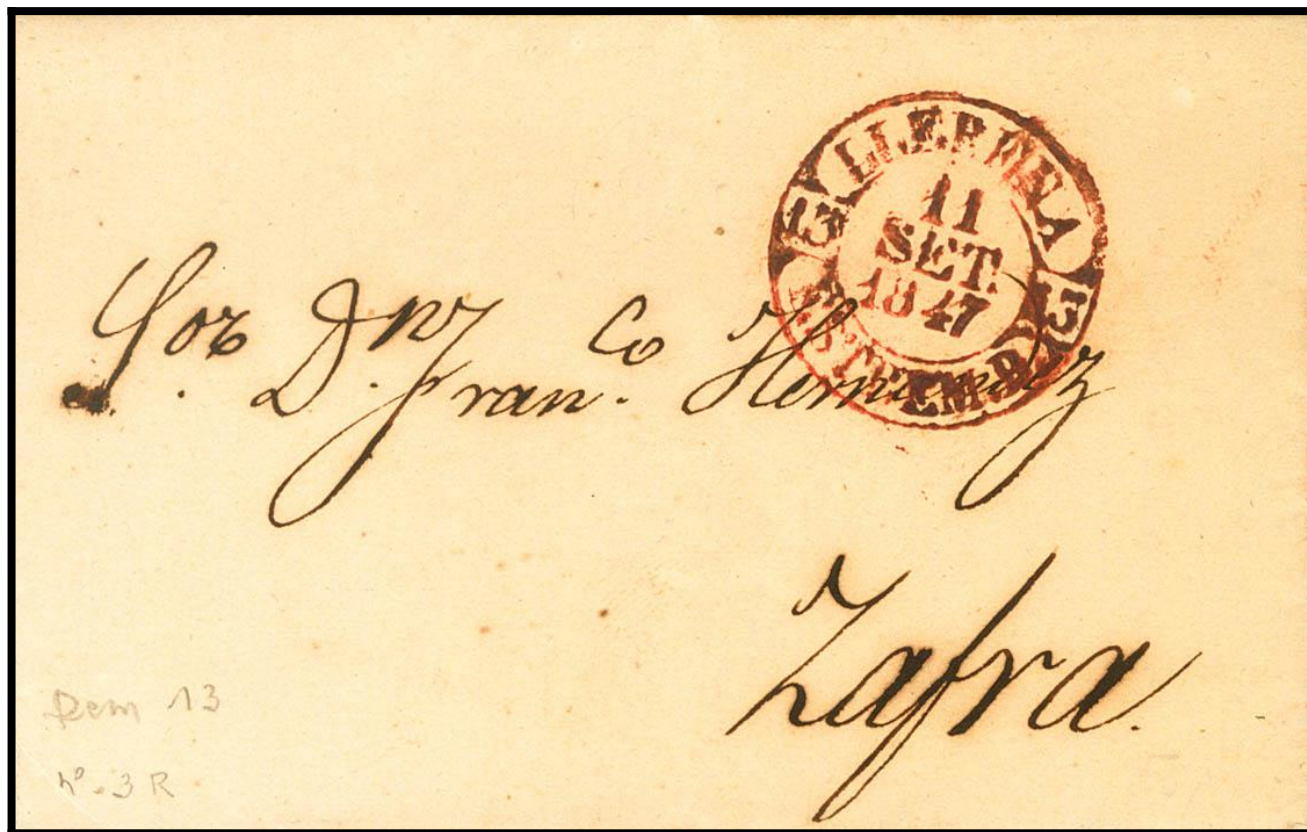 LLERENA
13 13
11
SET.
1847
ESTREMADURA
Sor. Dn. Franco. Hernandez
Zafra.
Dem 13
nº. 3 R